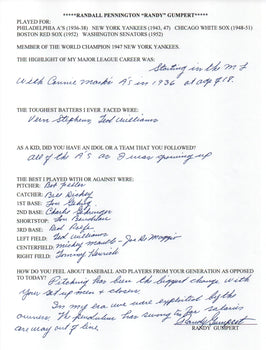 *****RANDALL PENNINGTON "RANDY" GUMPERT*****
PLAYED FOR:
PHILADELPHIA A'S (1936-38) NEW YORK YANKEES (1943, 47) CHICAGO WHITE SOX (1948-51)
BOSTON RED SOX (1952) WASHINGTON SENATORS (1952)
MEMBER OF THE WORLD CHAMPION 1947 NEW YORK YANKEES.
THE HIGHLIGHT OF MY MAJOR LEAGUE CAREER WAS:
Starting in the M L
with Connie Mack's A's in 1936 at age of 18.
THE TOUGHEST BATTERS I EVER FACED WERE:
Vern Stephens, Ted Williams
AS A KID, DID YOU HAVE AN IDOL OR A TEAM THAT YOU FOLLOWED?
all of the A's as I was growing up
THE BEST I PLAYED WITH OR AGAINST WERE:
PITCHER: Bob Feller
CATCHER: Bill Dickey
1ST BASE: Lou Gehrig
2ND BASE: Charlie Gehringer
SHORTSTOP: Lou Boudreau
3RD BASE: Red Rolfe
LEFT FIELD: Ted Williams
CENTERFIELD: Mickey Mantle - Joe Di Maggio
RIGHT FIELD: Tommy Henrich
HOW DO YOU FEEL ABOUT BASEBALL AND PLAYERS FROM YOUR GENERATION AS OPPOSED TO TODAY?
Pitching has been the biggest change with
your set up men & closers.
In my era we were exploited by the
owners. The pendulum has swung too far salaries
are way out of line
Randy Gumpert
RANDY GUMPERT